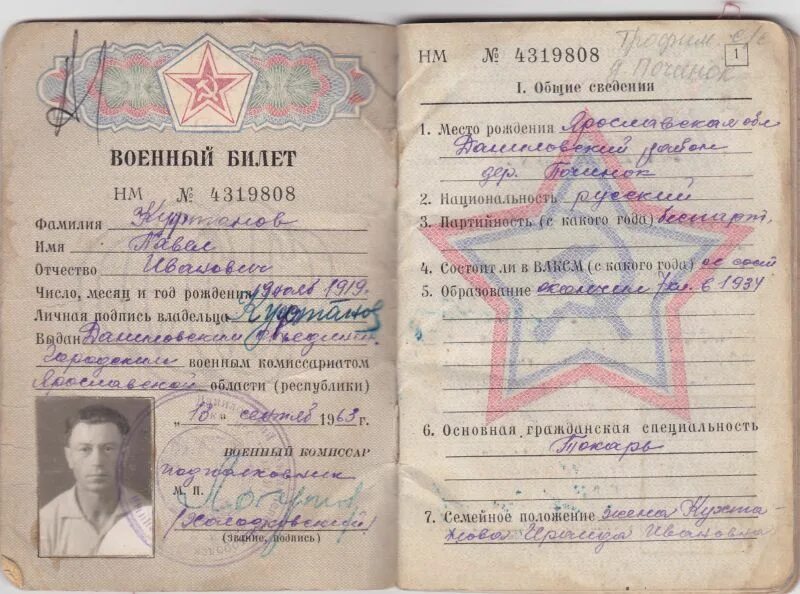 ВОЕННЫЙ БИЛЕТ
НМ № 4319808
Фамилия Кухтанов
Имя Павел
Отчество Иванович
Число, месяц и год рождения 19 1919г.
Личная подпись владельца Кухтанов
Выдан Даниловским
Городским военным комиссариатом
Ярославской области (республики)
„13“ сентяб 1963 г.
ВОЕННЫЙ КОМИССАР
подполковник
М. П.
(звание, подпись)
НМ № 4319808
Трофим. с/с
д Починок
1
I. Общие сведения
1. Место рождения Ярославская обл
Даниловский район
дер. Починок
2. Национальность русский
3. Партийность (с какого года) беспарт.
4. Состоит ли в ВЛКСМ (с какого года) не сост
5. Образование окончил 7 кл. в 1934
6. Основная гражданская специальность
Токарь
7. Семейное положение жена Кухта-
нова Ираида Ивановна